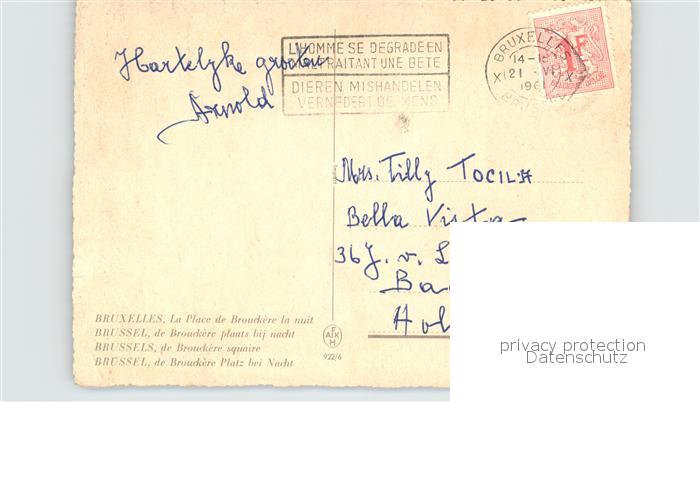 Hartelyke groeten
Arnold
L'HOMME SE DEGRADE EN
MALTRAITANT UNE BETE
DIEREN MISHANDELEN
VERNEDERT DE MENS
BRUXELLES
14-18
21 VI
1961
1F
Mrs. Tilly TOCILA
Bella Vista
36 J. v. L
Ba
Hol
BRUXELLES, La Place de Brouckère la nuit
BRUSSEL, de Brouckère plaats bij nacht
BRUSSELS, de Brouckère squaire
BRÜSSEL, de Brouckère Platz bei Nacht
922/6
privacy protection
Datenschutz